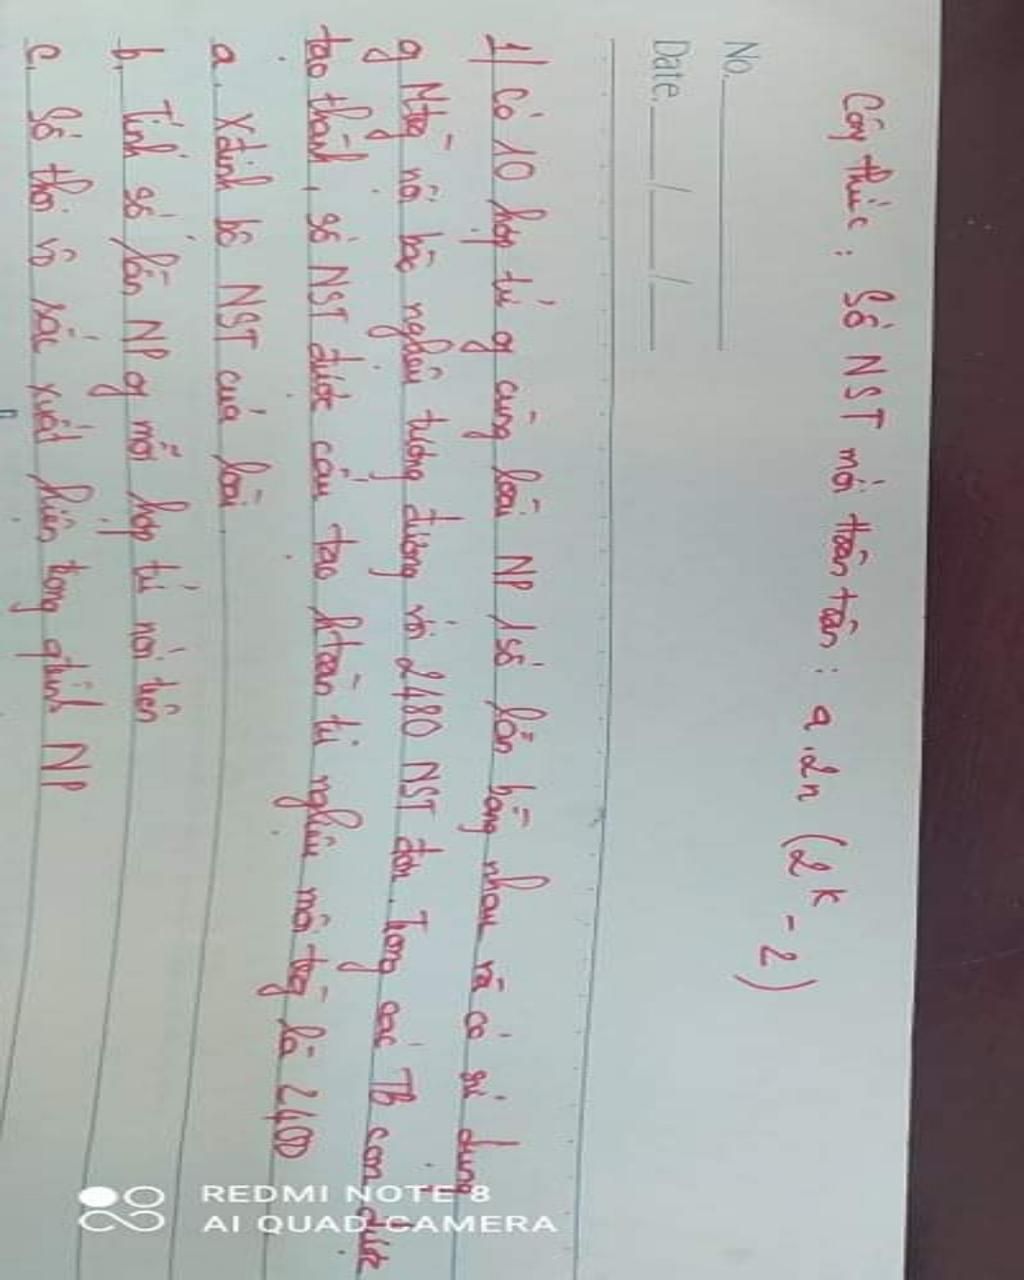 Công thức : Số NST mới htoàn toàn : a.2n (2^k - 2)
No.
Date. / /
1) Có 10 hợp tử of cùng loài NP 1 số lần bằng nhau và có sử dụng
of Mtrg nội bào nguyên liệu tương đương với 2480 NST đơn. Trong các TB con được
tạo thành, số NST được cấu tạo htoàn từ ngliệu môi trg là 2400
a. Xđịnh bộ NST của loài.
b. Tính số lần NP of mỗi hợp tử nói trên
c. Số thoi vô sắc xuất hiện trong qtrình NP
REDMI NOTE 8
AI QUAD CAMERA